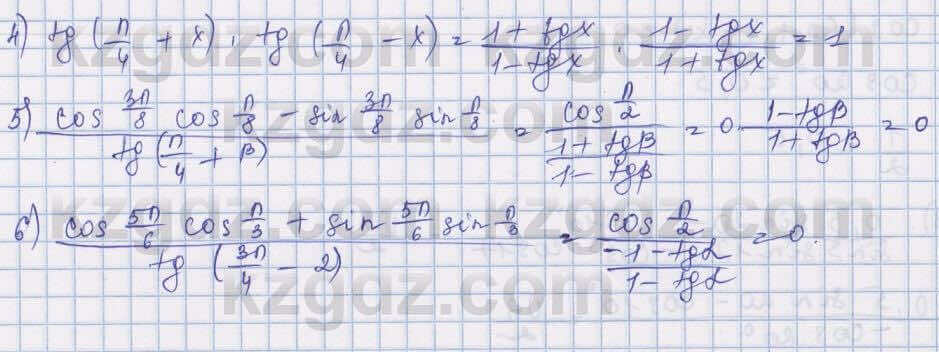 4) tg (π/4 + x) · tg (π/4 − x) = (1 + tgx)/(1 − tgx) · (1 − tgx)/(1 + tgx) = 1
5) (cos 3π/8 cos π/8 − sin 3π/8 sin π/8)/(tg (π/4 + β)) = (cos π/2)/((1 + tgβ)/(1 − tgβ)) = 0 · (1 − tgβ)/(1 + tgβ) = 0
6) (cos 5π/6 cos π/3 + sin 5π/6 sin π/3)/(tg (3π/4 − 2)) = (cos π/2)/((−1 − tgα)/(1 − tgα)) = 0.
kzgdz.com kzgdz.com
kzgdz.com
kzgdz.com kzgdz.com
kzgdz.com